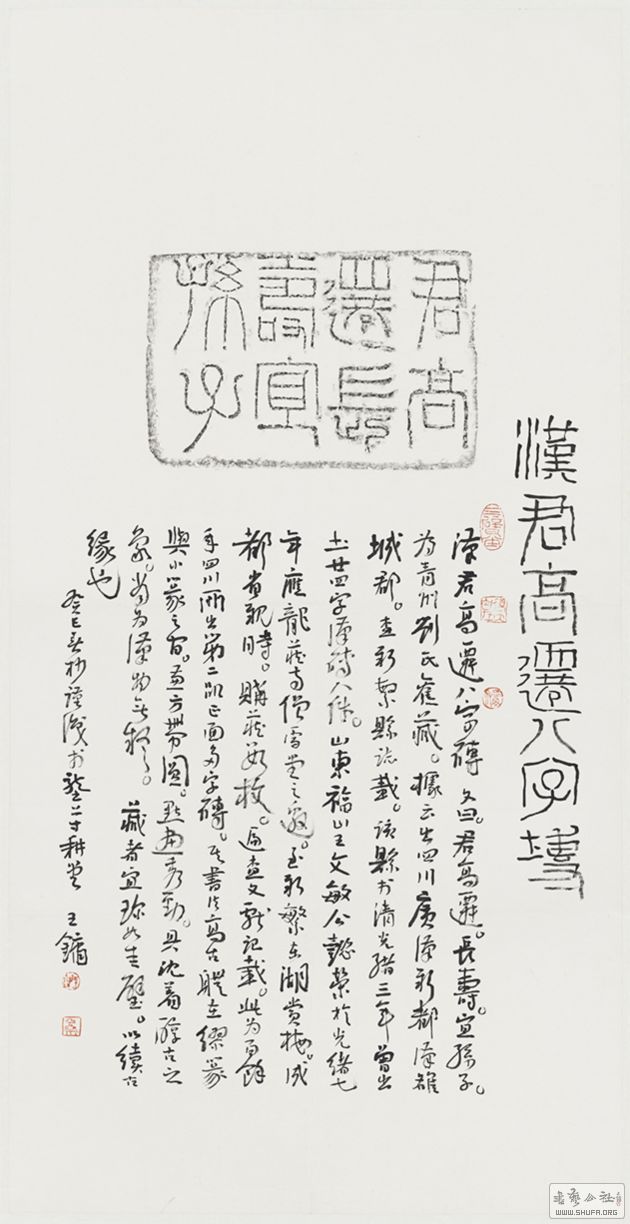 漢君高遷八字塼
君高
遷長
壽宜
孫子
漢君高遷八字磚 文曰。君高遷。長壽。宜孫子。
為青州劉氏舊藏。據云出四川廣漢新都漢雒
城郡。查新繁縣誌載。該縣於清光緒三年曾出
土廿四字漢磚八件。山東福山王文敏公懿榮於光緒七
年應龍藏寺僧雪堂之邀。至新繁東湖賞梅。成
都省親時。購藏數枚。遍查文獻記載。此為百餘
年四川所出第二凯正面多字磚。其書法高古 體在繆篆
與小篆之間。直方帶圓。點畫秀勁。具沈着醇古之
氣。當為漢物無疑。 藏者宜珍如圭璧。以續古
緣也
癸巳春杪謹識於鑿斗耕堂 王鏞
書藝公社
WWW.SHUFA.ORG